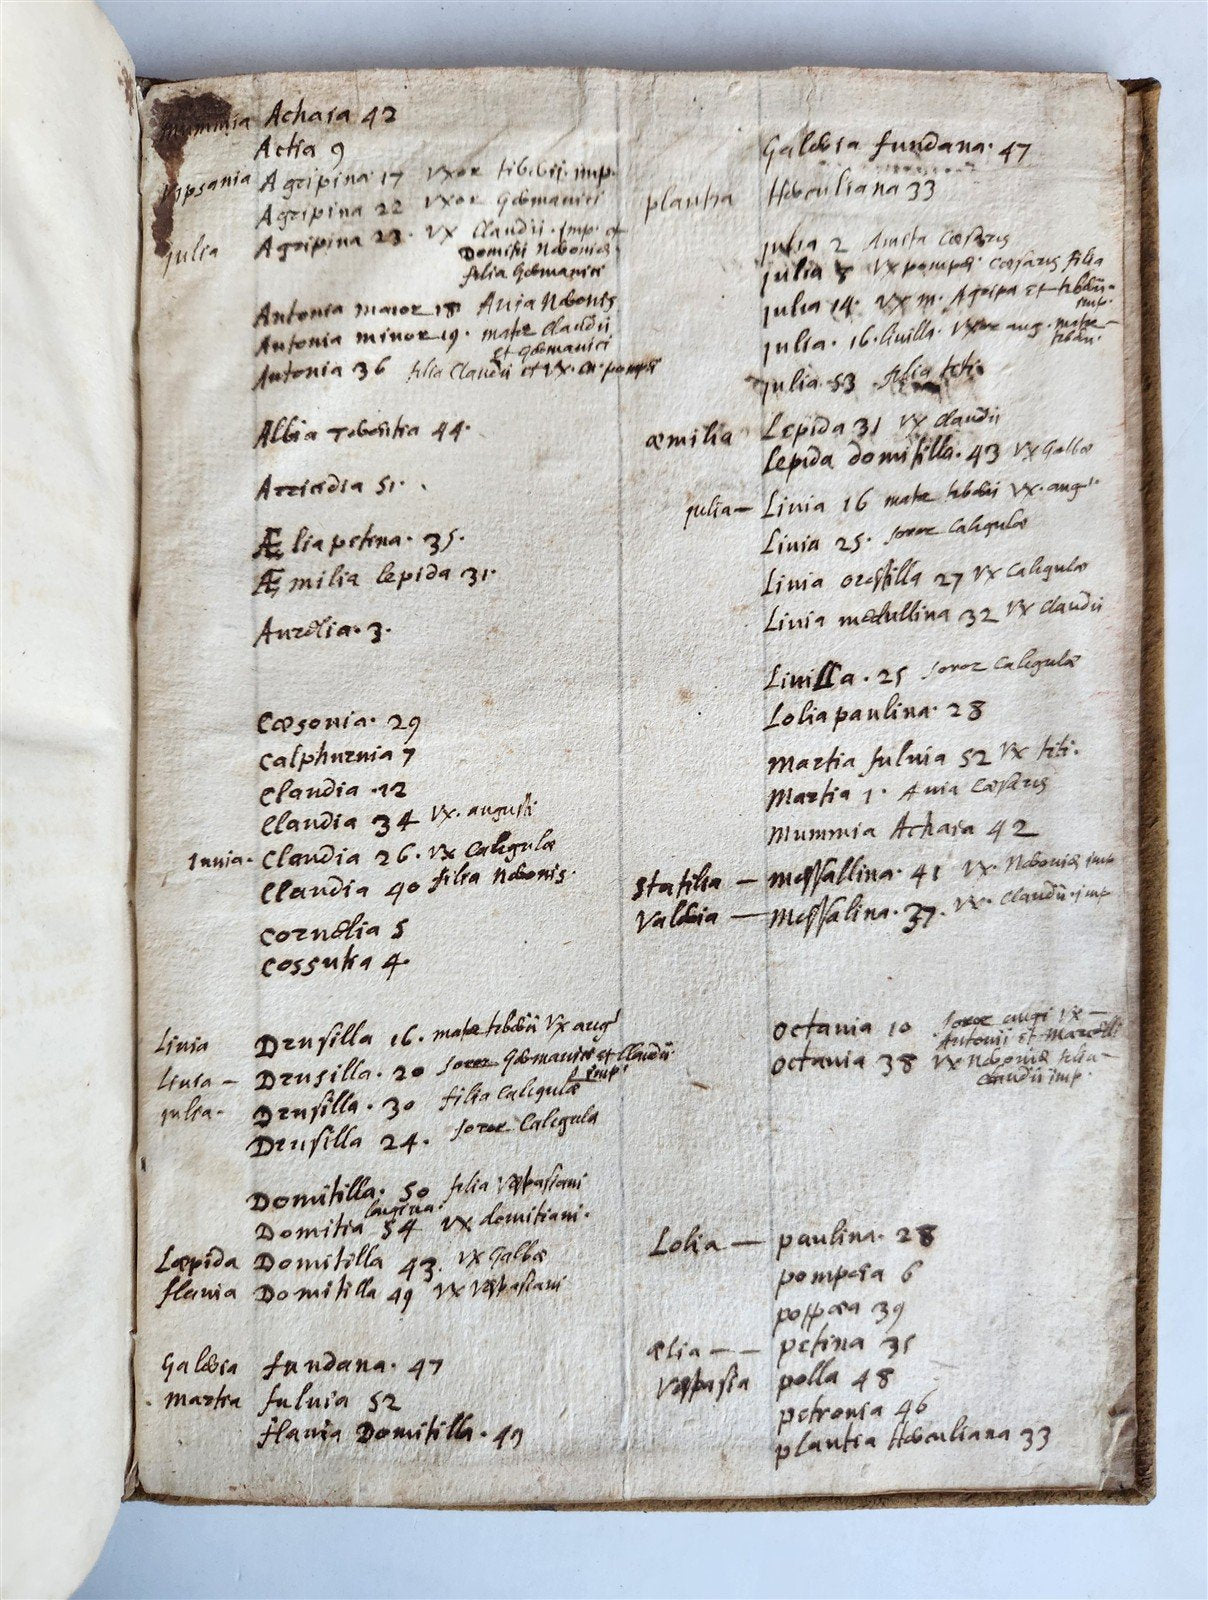 Mummia Achaia 42
Actia 9
Vipsania Agripina 17 Vxor tiberii imp.
Agripina 22 Vxor Germanici
julia Agripina 23. Vx Claudii. Imp. et
Domitii Neronis
filia Germanici
Antonia maior 18 Auia Neronis
Antonia minor 19. mater Claudii
et Germanici
Antonia 36 filia Claudii et Vx. cn. pompei
Albia Terentia 44.
Arricidia 51.
Ælia petina. 35.
Æmilia lepida 31.
Aurelia. 3.
Cæsonia. 29
Calphurnia 7
Claudia .12
Claudia 34 Vx. augusti
Iunia. Claudia 26. Vx Caligulæ
Claudia 40 filia Neronis.
Cornelia 5
Cossutia 4.
Liuia Drusilla 16. mater tiberii Vx aug
Liuia — Drusilla. 20 soror Germanici et Claudii
imp.
julia. Drusilla. 30 filia Caligulæ
Drusilla 24. soror Caligula
Domitilla. 50 filia Vespasiani
longina.
Domitia 54 Vx domitiani.
Læpida Domitilla 43. Vx Galbæ
flauia Domitilla 49 Vx Vespasiani
Galeria fundana. 47
Martia fuluia 52
flauia Domitilla. 49
Galeria fundana. 47
plautia Herculiana 33
julia 2 Amita Cæsaris
julia 8 Vx pompei Cæsaris filia
julia 14. Vx m. Agripa et tiberii
imp.
julia. 16. liuilla. Vxor aug. mater
tiberii.
julia. 53 filia titi
æmilia Lepida 31 Vx Claudii
Lepida domitilla. 43 Vx Galbæ
julia — Liuia 16 mater tiberii Vx. aug
Liuia 25. soror Caligulæ
Liuia orestilla 27 Vx Caligulæ
Liuia medullina 32 Vx Claudii
Liuilla. 25 soror Caligulæ
Lolia paulina. 28
Martia fuluia 52 Vx titi.
Martia 1. Auia Cæsaris
Mummia Achaia 42
Statilia — Messallina. 41 Vx. Neronis imp
Valeria — Messalina. 37. Vx. Claudii. imp
Octauia 10 soror augi Vx —
Antonii et Marcelli
Octauia 38 Vx Neronis filia —
Claudii imp.
Lolia — paulina. 28
pompeia 6
poppæa 39
ælia — — petina 35
Vespasia polla 48
petronia 46
plautia Herculiana 33